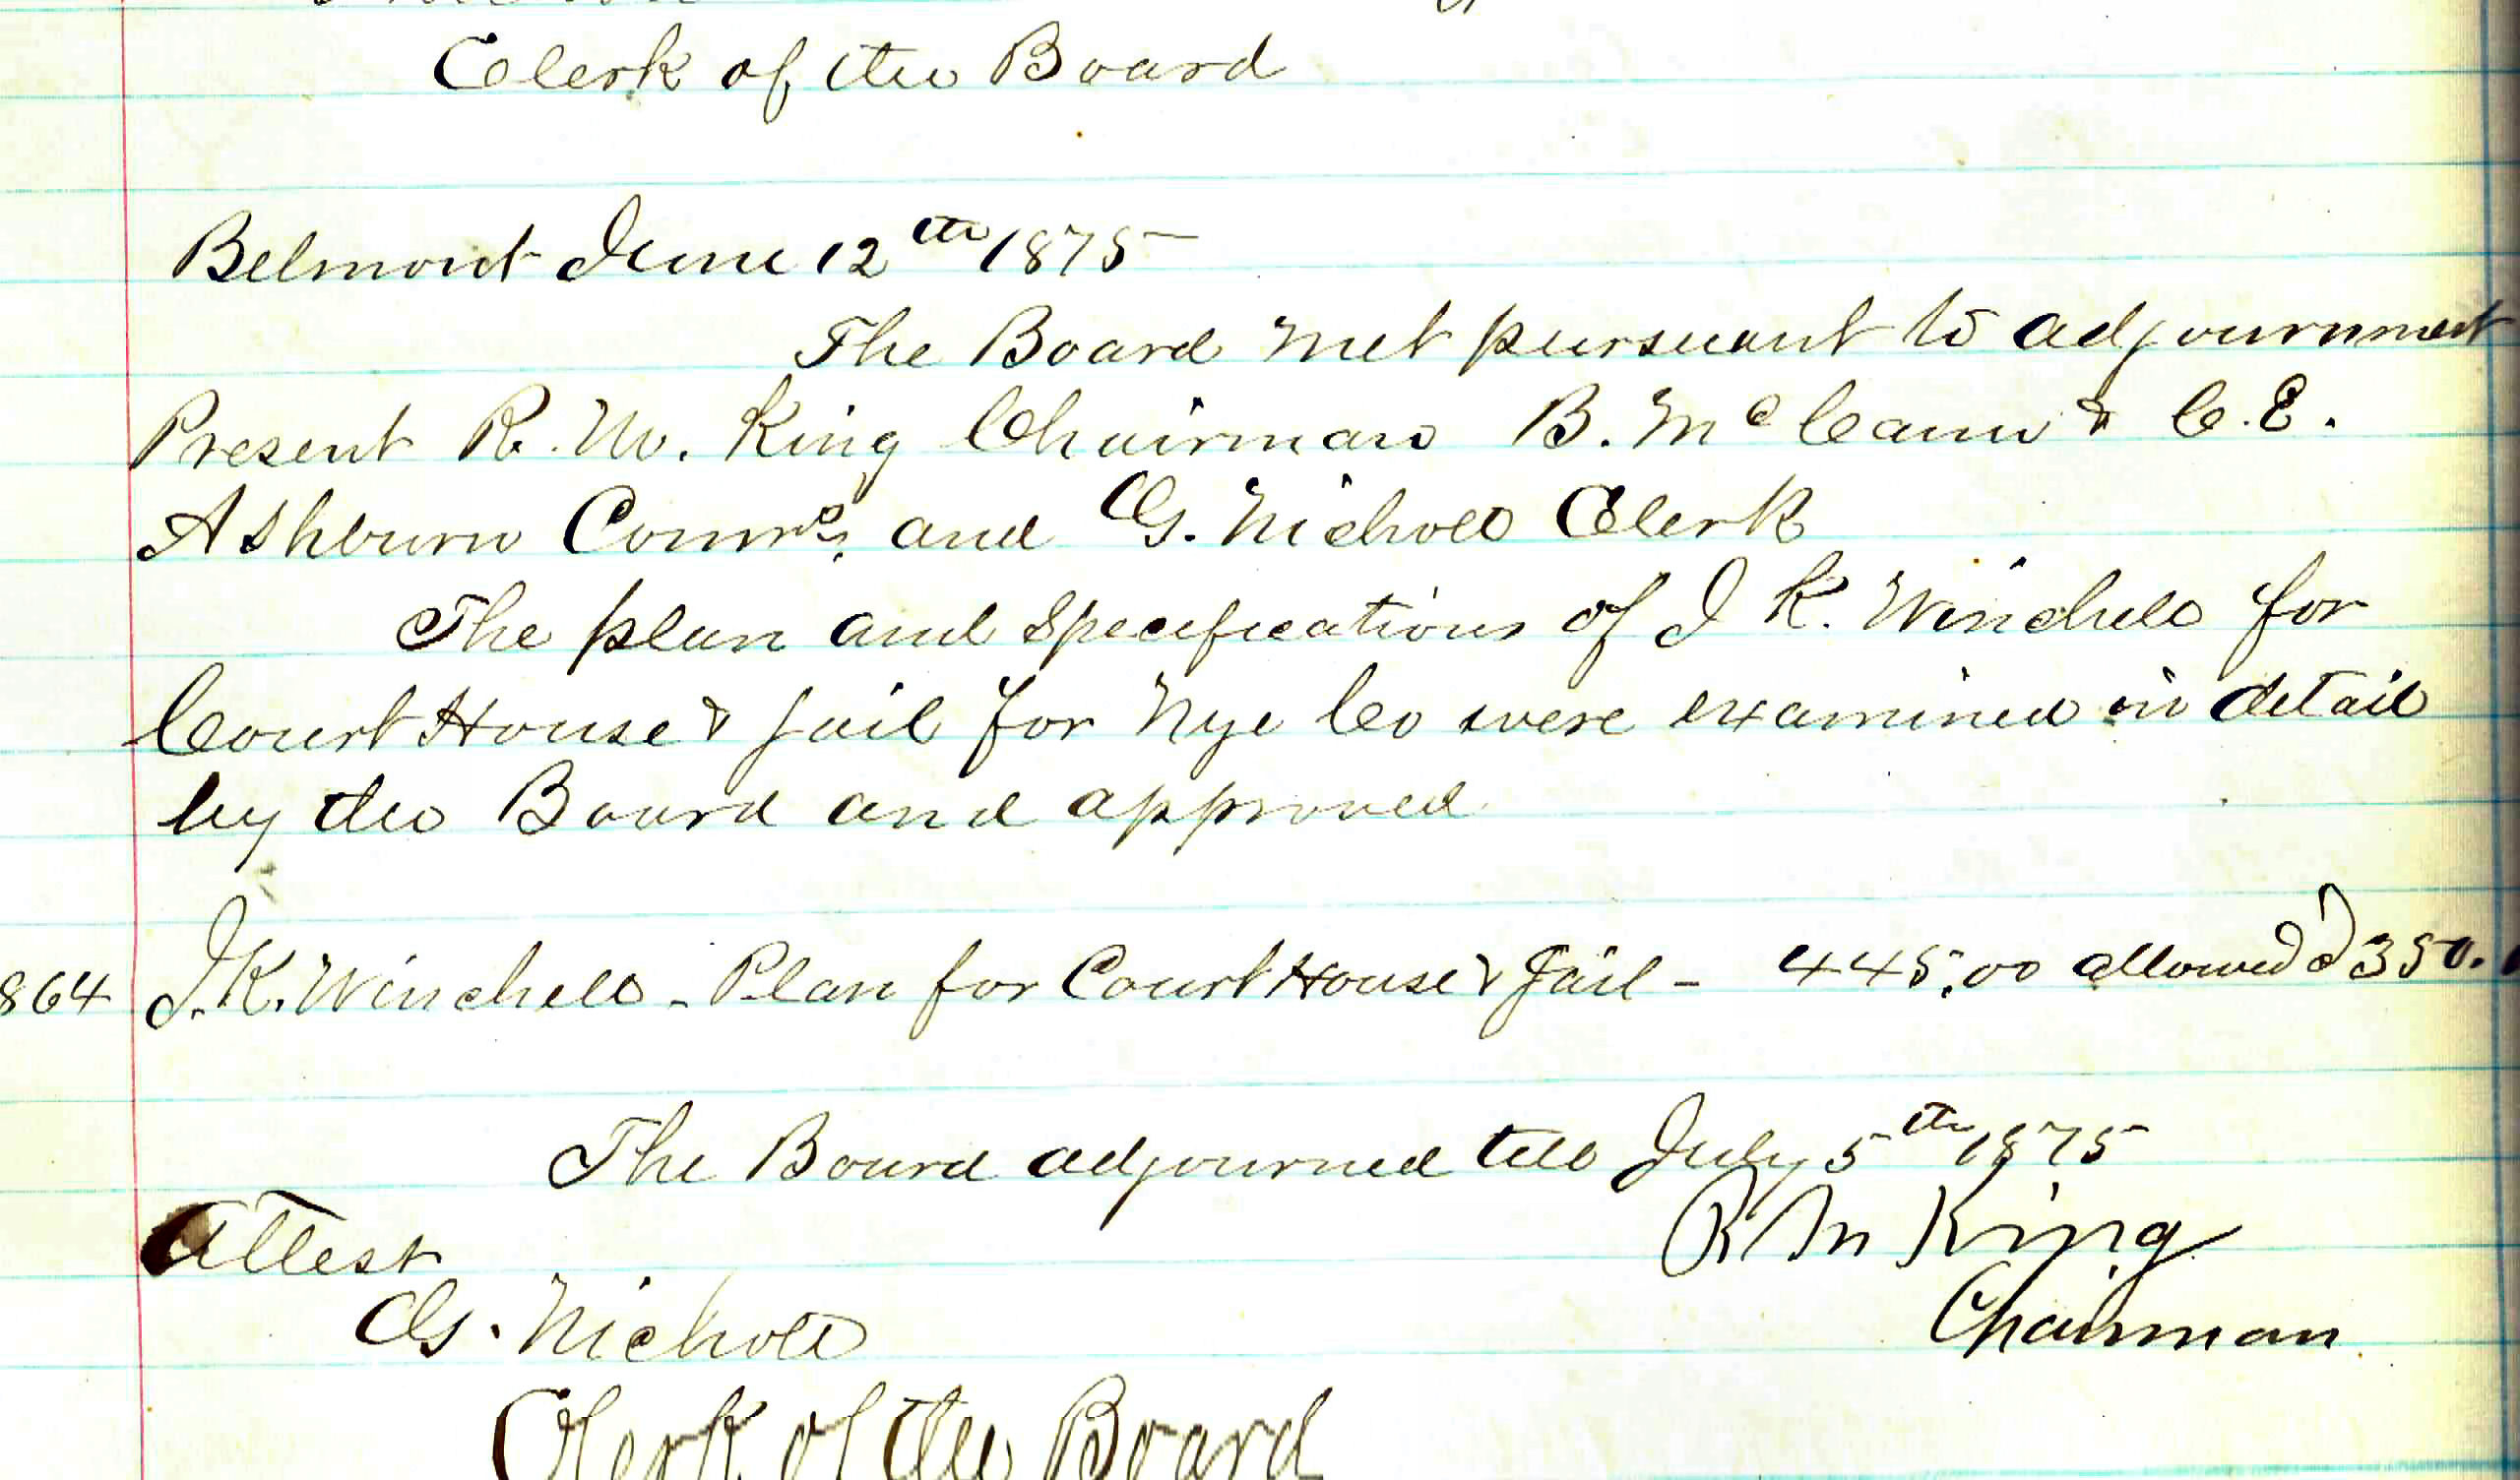 Clerk of the Board
Belmont June 12th 1875
The Board met pursuant to adjournment
Present R. M. King Chairman B. McCann & C. E.
Ashburn Comrs, and G. Nicholl Clerk
The plan and Specifications of J. K. Winchell for
Court House & Jail for Nye Co were examined in detail
by the Board and approved
864 J. K. Winchell - Plan for Court House & Jail - 445.00 allowed @ 350.
The Board adjourned till July 5th 1875
Attest R M King
G. Nicholl Chairman
Clerk of the Board